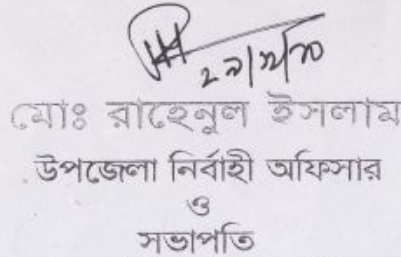 মোঃ রাহেনুল ইসলাম
উপজেলা নির্বাহী অফিসার
ও
সভাপতি